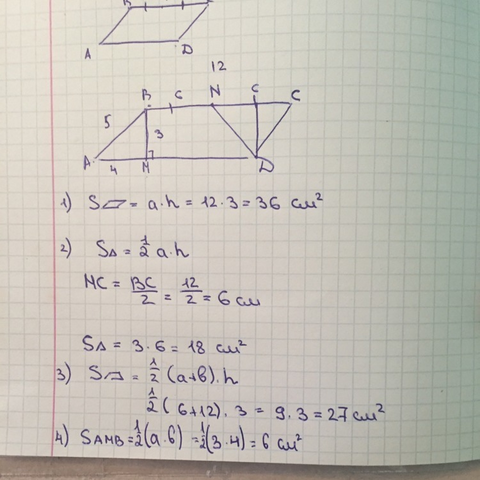 B
A D
12
B C N C C
5
3
A 4 M D
1) S▱ = a·h = 12·3 = 36 см²
2) S△ = ½ a·h
NC = BC/2 = 12/2 = 6 см
S△ = 3·6 = 18 см²
3) S⏢ = ½ (a+b)·h
½ (6+12)·3 = 9·3 = 27 см²
4) SAMB = ½(a·b) = ½(3·4) = 6 см²